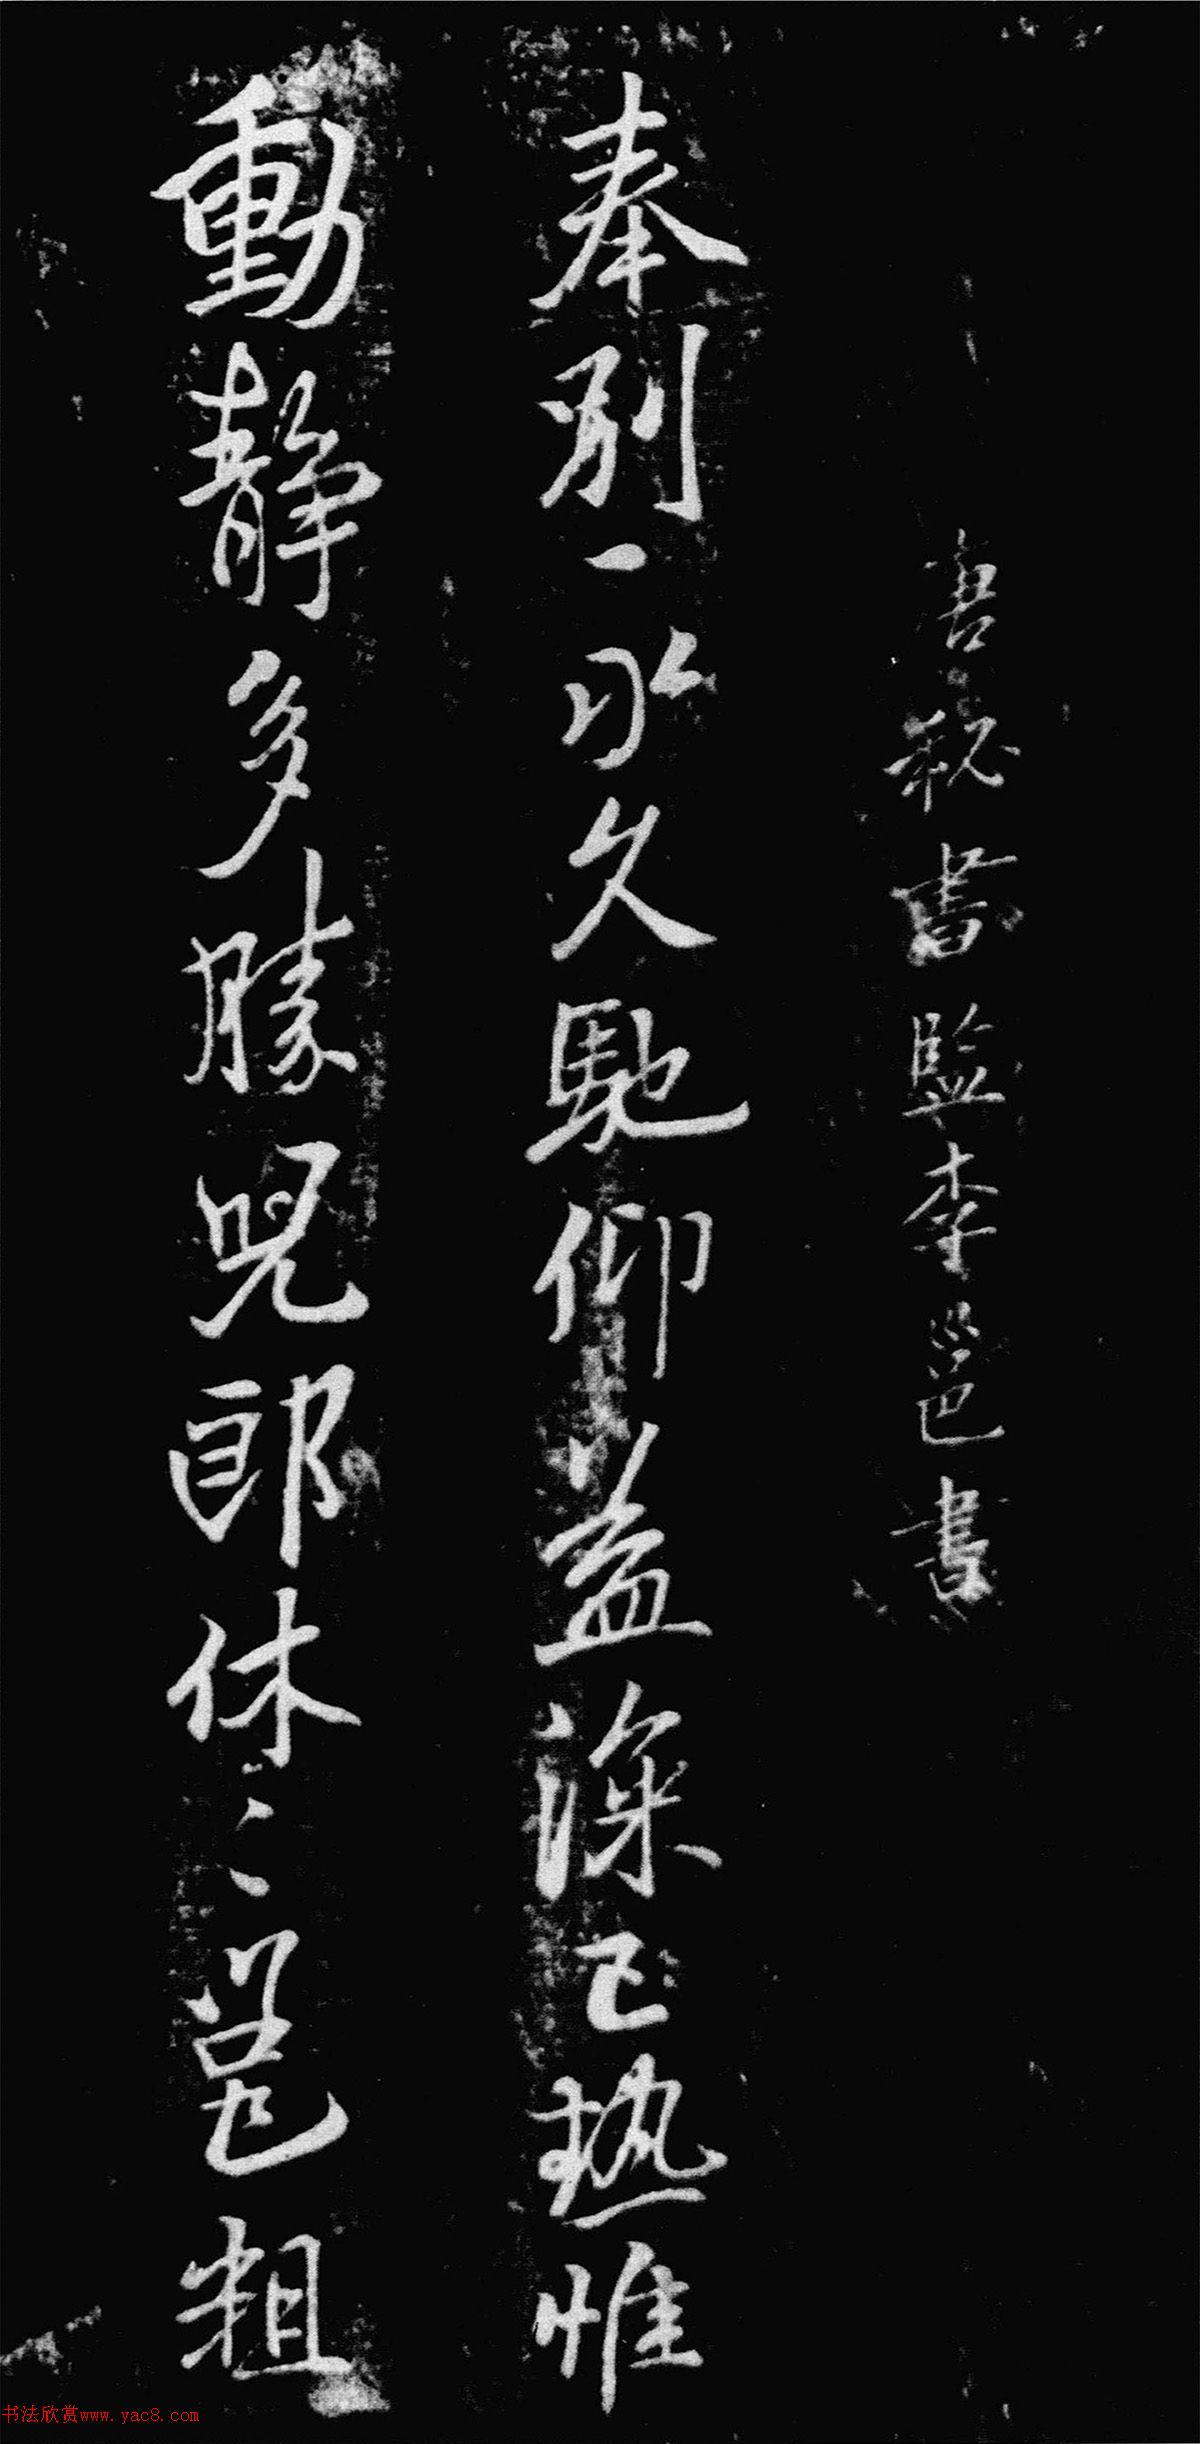 唐秘書監李邕書
奉別永久馳仰益深已熱惟
動靜多勝兒郎休〻邕粗
书法欣赏www.yac8.com